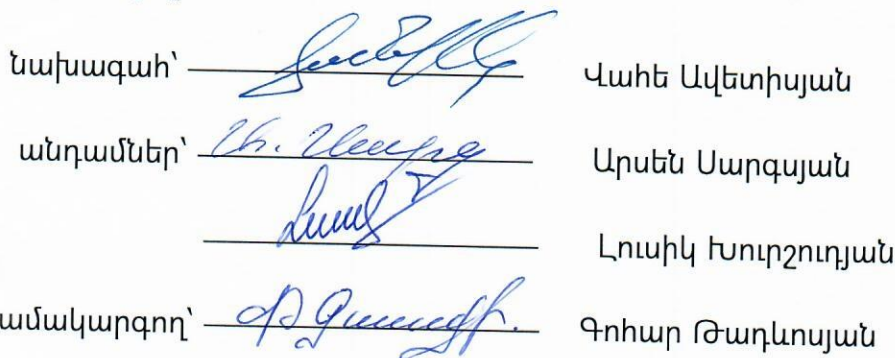 նախագահ՝ Վահե Ավետիսյան
անդամներ՝ Արսեն Սարգսյան
Լուսիկ Խուրշուդյան
ամակարգող՝ Գոհար Թադևոսյան